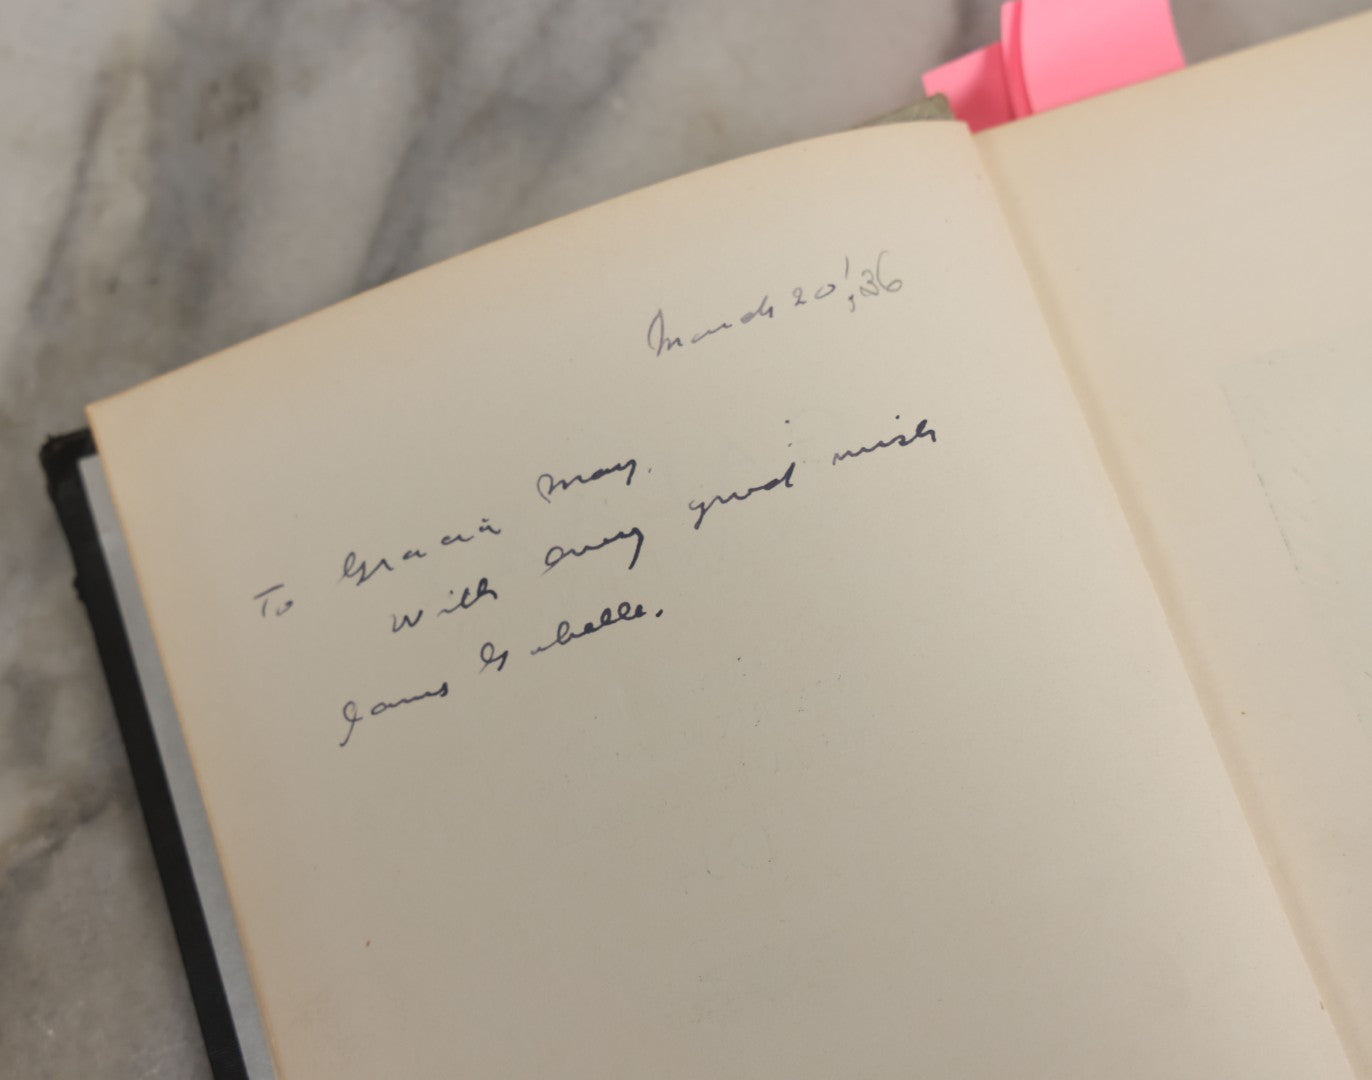 March 20', 36
To Gracie May.
With every good wish
James G